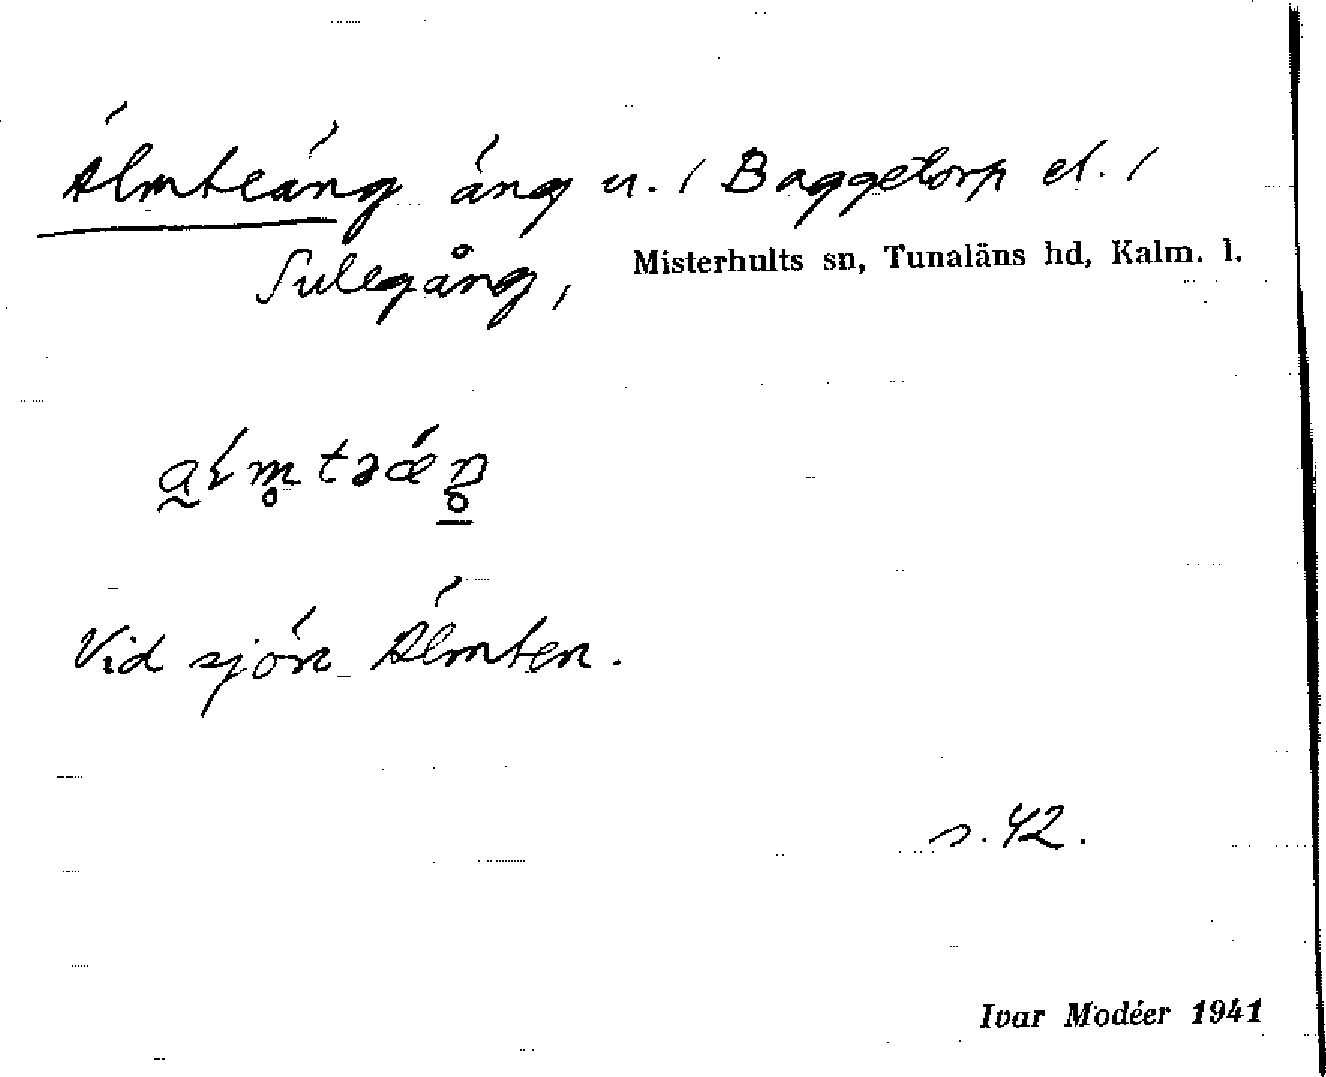 Älmteäng äng u. / Baggetorp el. /
Sulegång, Misterhults sn, Tunaläns hd, Kalm. l.
Vid sjön Älmten.
s. 42.
Ivar Modéer 1941